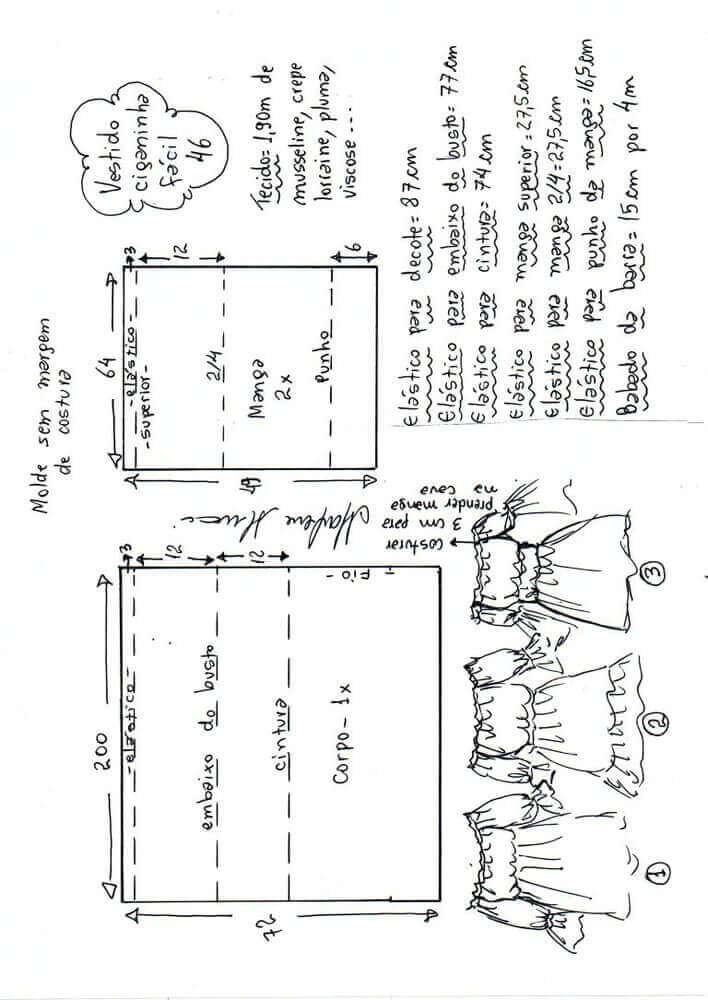 Molde sem margem
de costura
Vestido
ciganinha
fácil
46
Tecido= 1,90m de
musseline, crepe
lorraine, pluma,
viscose ...
200
3
-elástico-
12
embaixo do busto
12
cintura
Corpo - 1x
Fio
72
64
3
-elástico-
-superior-
12
2/4
Manga
2x
Punho
6
49
Marlene Mukai
Elástico para decote= 87cm
Elástico para embaixo do busto= 77cm
Elástico para cintura= 74cm
Elástico para manga superior= 27,5cm
Elástico para manga 2/4=27,5cm
Elástico para punho da manga=16,5cm
Babado da barra= 15cm por 4m
costurar
3 cm para
prender manga
na cava
1
2
3